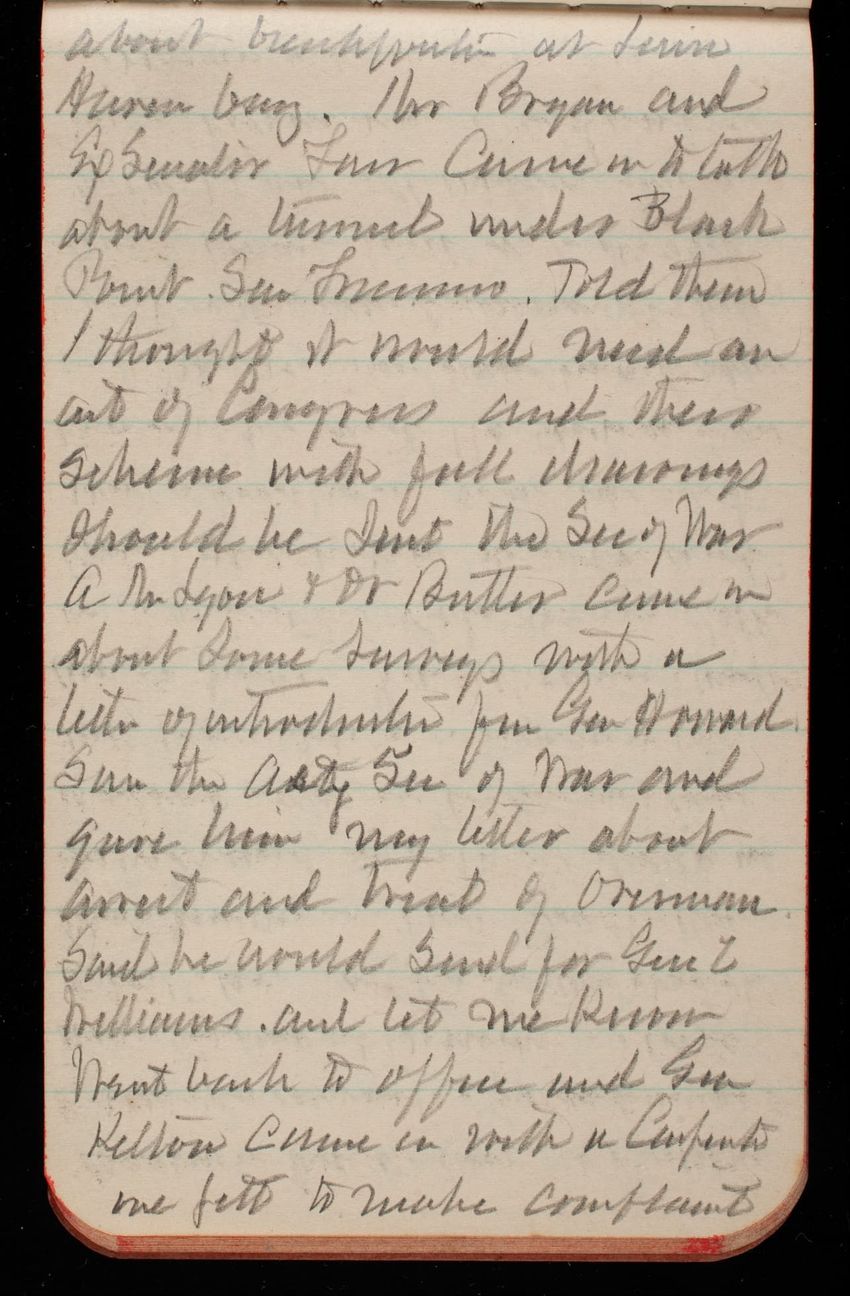 about                at
            . Mr Bryan and
Ex Senator       Came in to talk
about a tunnel under Black
Point. San Francisco. Told them
I thought it would need an
act of Congress and their
Scheme with full drawings
Should be Sent the Sec of War
A Mr Lyon & Dr Butler came in
about Some Surveys with a
letter of introduction from Gen Howard.
Saw the Actg Sec of War and
gave him my letter about
arrest and treat of
Said he would Send for Gen
Williams. and let me Know
Went back to office and Gen
Kelton Came in with a Carpenter
we felt to make complaint